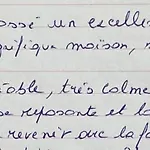 passé un excelle
gnifique maison, n
éable, très calme
se reposante et la
revenir avec la fa